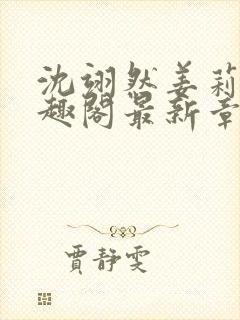 沈翊然姜莉
趣阁最新章
贾静雯